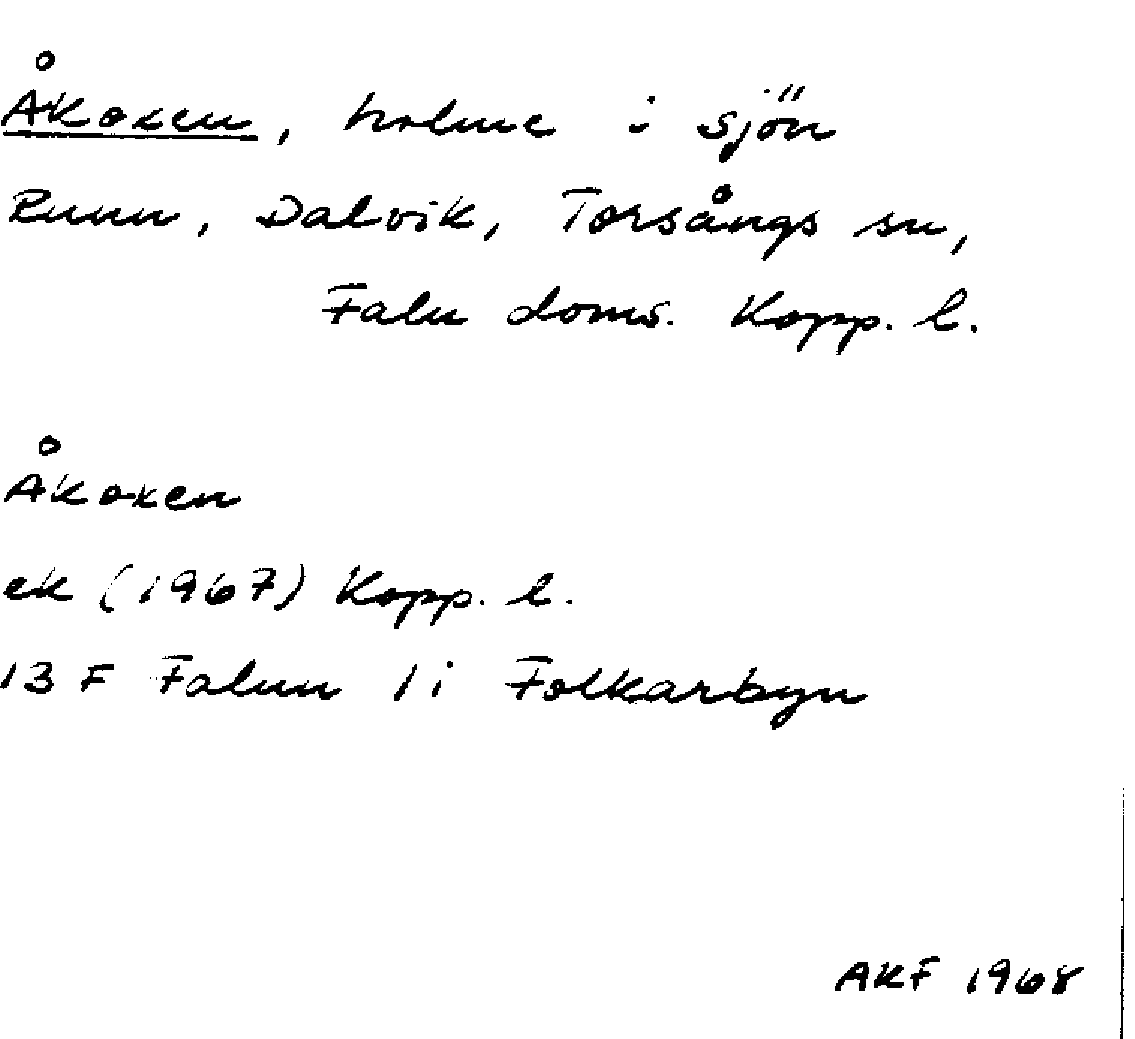 Åkoxen, holme i sjön
Runn, Dalvik, Torsångs sn,
Falu doms. Kopp. l.
Åkoxen
ek (1967) Kopp. l.
13 F Falun 1 i Folkarbyn
AKF 1968